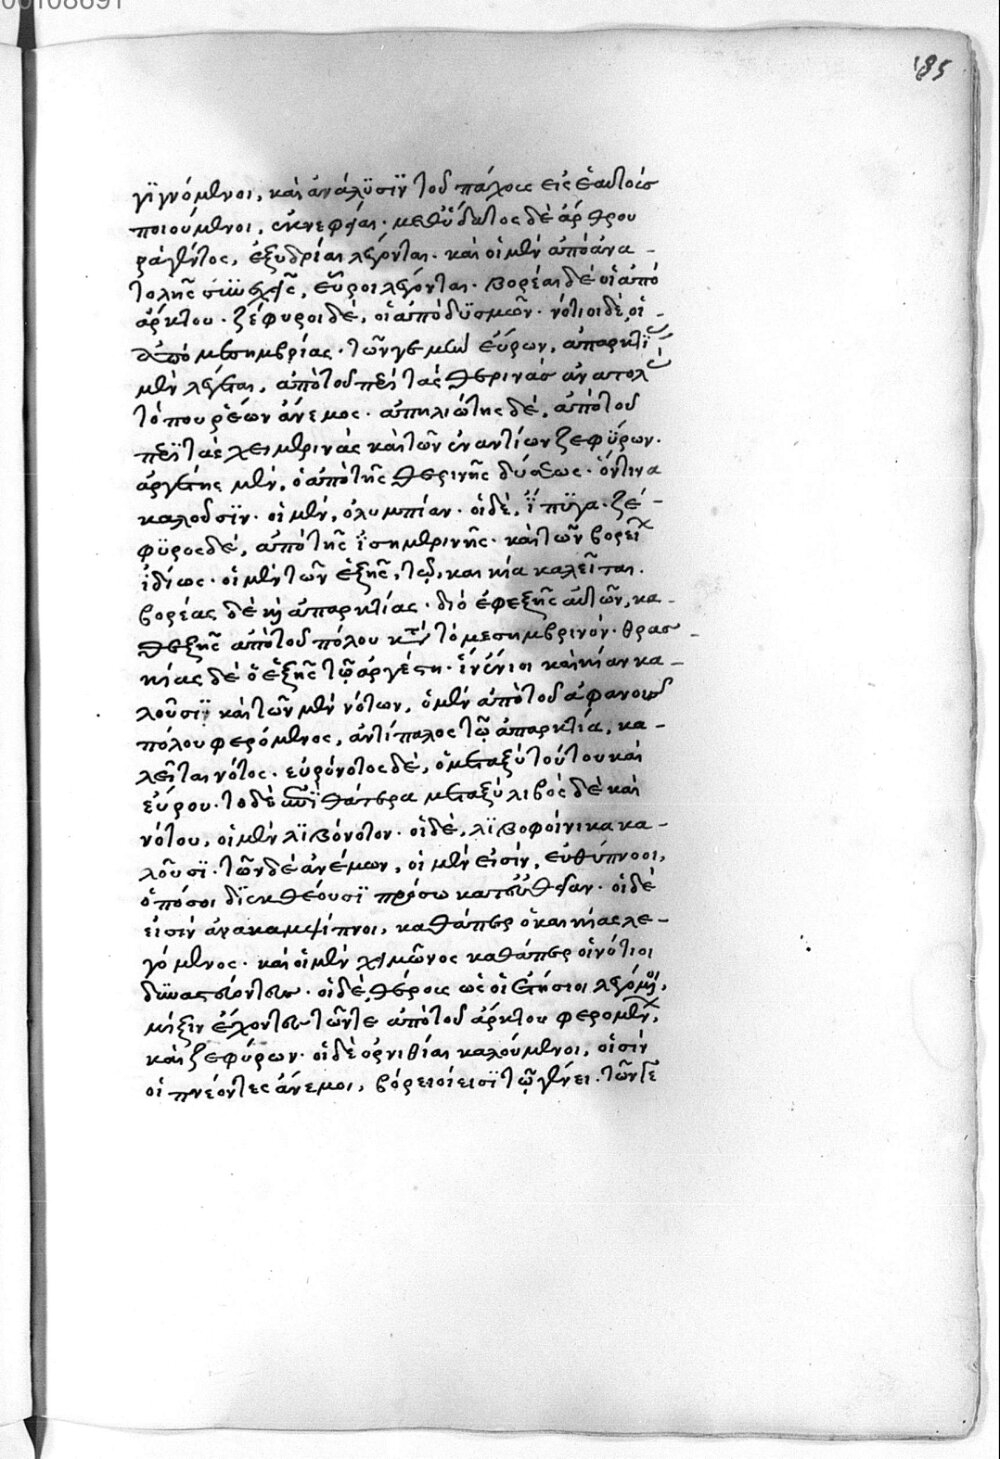 00108691
185
γϊγνόμενοι, καὶ ἀνάλϋσϊν τοῦ πάχους εἰς ἑαυτοὺς
ποιούμενοι, ἐκνεφίαι· μεθ' ὕδατος δὲ ἀρθρου
ραγέντος, ἐξυδρίαι λέγονται· καὶ οἱ μὲν ἀπὸ ἀνα-
τολῆς συνεχεῖς, εὖροι λέγονται· βορέαι δὲ οἱ ἀπὸ
ἄρκτου· ζέφυροι δὲ, οἱ ἀπὸ δϋσμῶν· νότιοι δὲ, οἱ-
ἀπὸ μεσημβρίας· τῶν γε μὴν εὔρων,
μὲν λέγεται, ἀπὸ τοῦ περὶ τὰς θερινὰς ἀνατολ
τόπου ῥέων ἄνεμος· ἀπηλιώτης δὲ, ἀπὸ τοῦ
περὶ τὰς χειμερινὰς καὶ τῶν ἐναντίων ζεφύρων·
ἀργέστης μὲν, ὁ ἀπὸ τῆς θερινῆς δύσεως· ὅντινα
καλοῦσϊν· οἱ μὲν, ὀλυμπίαν· οἱ δὲ, ἰπϋγα· ζέ-
φϋρος δὲ, ἀπὸ τῆς ἰσημερινῆς· καὶ τῶν βορεϊ
ἰδίως· οἱ μὲν τῶν ἑξῆς, τῷ, καικία καλεῖται.
βορέας δὲ ἢ ἀπαρκτίας· διὸ ἐφεξῆς αὐτῶν, κα-
θεξῆς ἀπὸ τοῦ πόλου κατὰ τὸ μεσημβρινόν· θρασ-
κίας δὲ ὁ ἑξῆς τῷ ἀργέστῃ· ἐν ἔνιοι καικίαν κα-
λοῦσϊ· καὶ τῶν μὲν νότων, ὁ μὲν ἀπὸ τοῦ ἀφανοῦς
πόλου φερόμενος, ἀντίπαλος τῷ ἀπαρκτία, κα-
λεῖται νότος· εὐρόνοτος δὲ, ὁ μεταξὺ τούτου καὶ
εὔρου· τὸ δὲ ἐπὶ θάτερα μεταξὺ λιβὸς δὲ καὶ
νότου, οἱ μὲν λϊβόνοτον· οἱ δὲ, λϊβοφοίνικα κα-
λοῦσϊ· τῶν δὲ ἀνέμων, οἱ μὲν εἰσὶν, εὐθύπνοοι,
ὁπόσοι δϊεκθέουσϊ πρόσω κατ' εὐθεῖαν· οἱ δὲ
εἰσὶν ἀνακαμψίπνοι, καθάπερ ὁ καικίας λε-
γόμενος· καὶ οἱ μὲν χειμῶνος καθάπερ οἱ νότιοι
δυναστεύοντες· οἱ δὲ, θέρους ὡς οἱ ἐτήσιοι λεγόμενοι,
μίξιν ἔχοντες τῶν τε ἀπὸ τοῦ ἄρκτου φερομένων,
καὶ ζεφύρων· οἱ δὲ ὀρνιθίαι καλούμενοι, οἱσὶν
οἱ πνέοντες ἄνεμοι, βόρειοί εἰσϊ τῷ γένει· τῶν γε